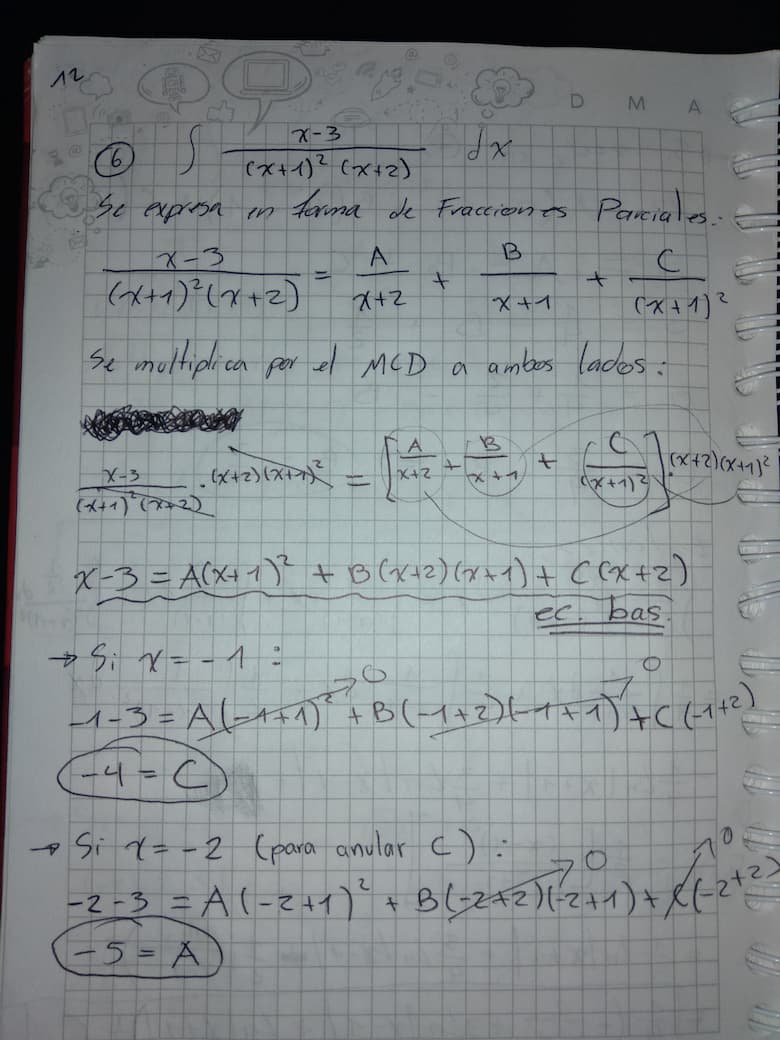 12
D M A
⑥ ∫ x-3 / (x+1)² (x+2) dx
Se expresa en forma de Fracciones Parciales:
x-3 / (x+1)²(x+2) = A / x+2 + B / x+1 + C / (x+1)²
Se multiplica por el MCD a ambos lados:
x-3 / (x+1)²(x+2) · (x+2)(x+1)² = [A / x+2 + B / x+1 + C / (x+1)²] · (x+2)(x+1)²
x-3 = A(x+1)² + B(x+2)(x+1) + C(x+2)
ec. bas.
→ Si x = -1 :
0 0
-1-3 = A(-1+1)² + B(-1+2)(-1+1) + C(-1+2)
-4 = C
→ Si x = -2 (para anular C) :
0 0
-2-3 = A(-2+1)² + B(-2+2)(-2+1) + C(-2+2)
-5 = A